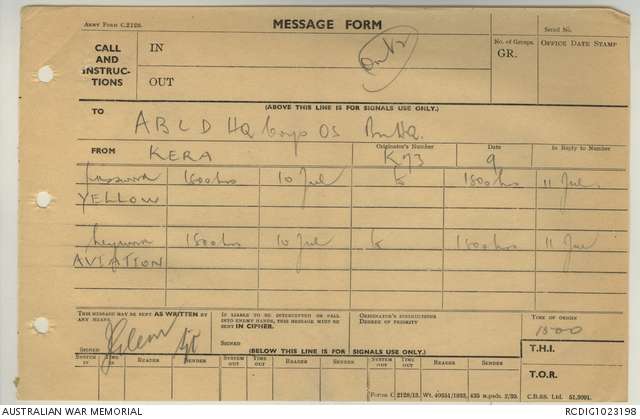 ARMY FORM C.2128.
MESSAGE FORM
Serial No.
CALL AND INSTRUC-TIONS
IN
OUT
No. of Groups.
GR.
OFFICE DATE STAMP
(ABOVE THIS LINE IS FOR SIGNALS USE ONLY.)
TO
A B C D HQ Coys OS
FROM
KERA
Originator's Number
K73
Date
9
In Reply to Number
password 1500 hrs 10 Jul to 1500 hrs 11 Jul
YELLOW
keyword 1500 hrs 10 Jul to 1500 hrs 11 Jul
AVIATION
THIS MESSAGE MAY BE SENT AS WRITTEN BY ANY MEANS.
SIGNED
Lt
IF LIABLE TO BE INTERCEPTED OR FALL INTO ENEMY HANDS, THIS MESSAGE MUST BE SENT IN CIPHER.
SIGNED
ORIGINATOR'S INSTRUCTIONS
DEGREE OF PRIORITY
TIME OF ORIGIN
1500
(BELOW THIS LINE IS FOR SIGNALS USE ONLY.)
T.H.I.
SYSTEM IN
TIME IN
READER
SENDER
SYSTEM OUT
TIME OUT
READER
SENDER
SYSTEM OUT
TIME OUT
READER
SENDER
T.O.R.
C.B.SS. Ltd. 51,9091.
AUSTRALIAN WAR MEMORIAL
RCDIG1023198